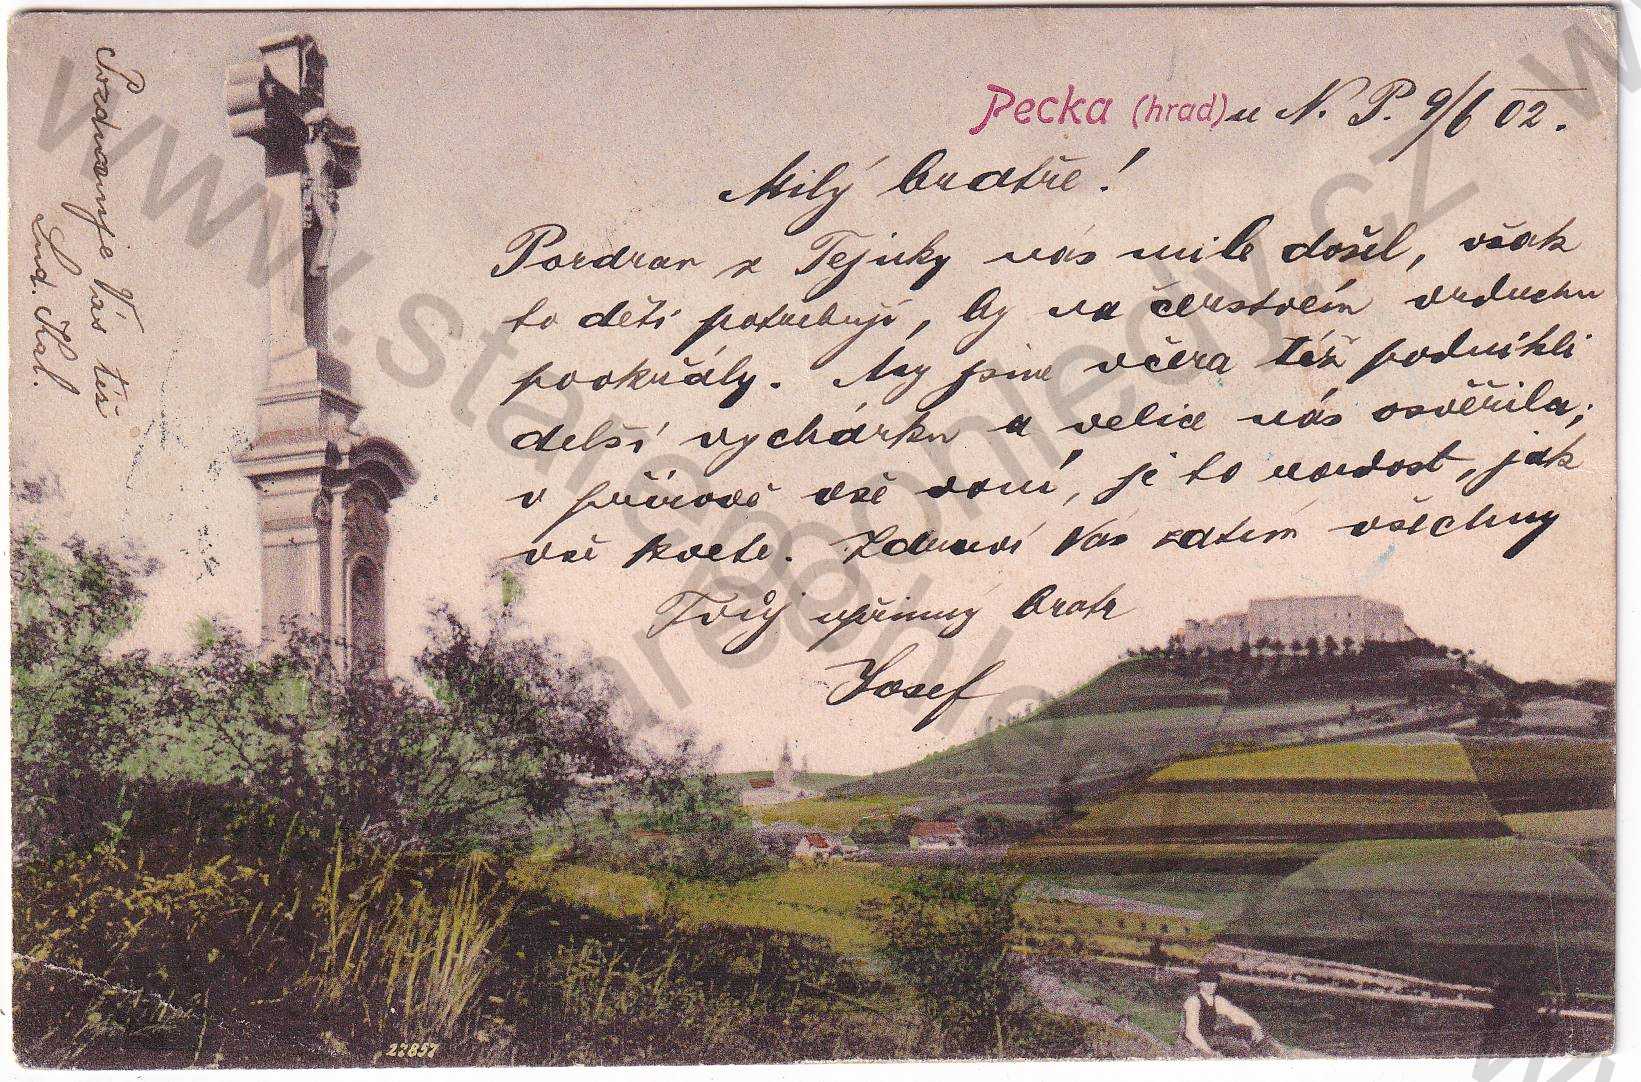 Pecka (hrad) u N. P. 9/6 02.
Milý bratře!
Pozdrav z Tejnky nás mile došel, však
to děti potřebují, by na čerstvém vzduchu
pookřály. My jsme včera též podnikli
delší vycházku a velice nás osvěžila;
v přírodě vše voní, je to radost, jak
vše kvete. Zdraví Vás zatím všechny
Tvůj upřímný bratr
Josef
Pozdravuje Vás též
Lud. Kal.
27857
www.starepohledy.cz